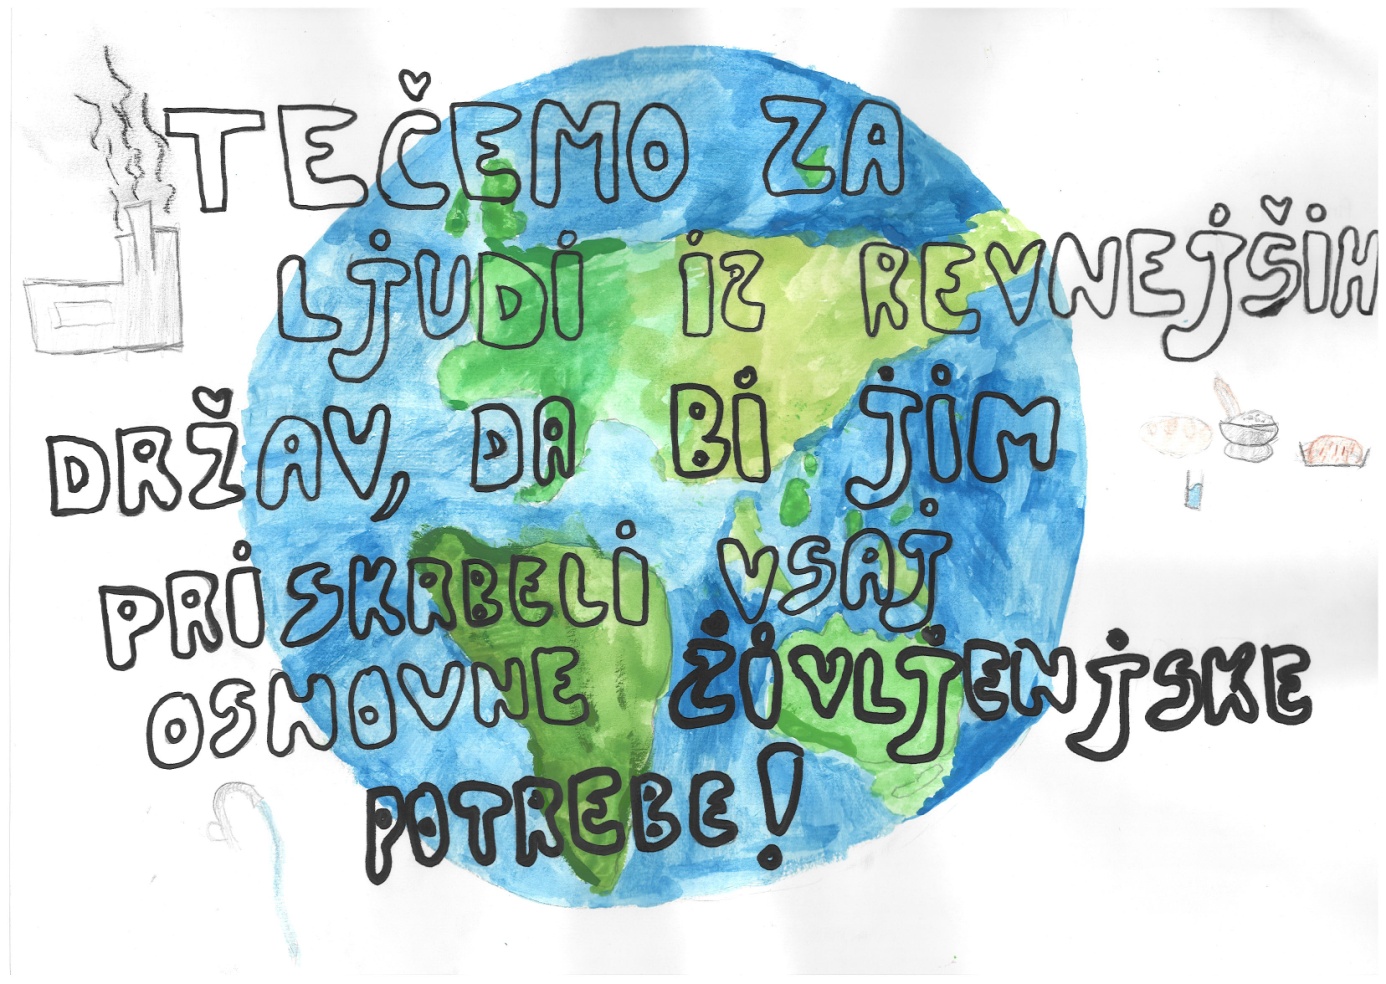 TEČEMO ZA
LJUDI IZ REVNEJŠIH
DRŽAV, DA BI JIM
PRISKRBELI VSAJ
OSNOVNE ŽIVLJENJSKE
POTREBE!